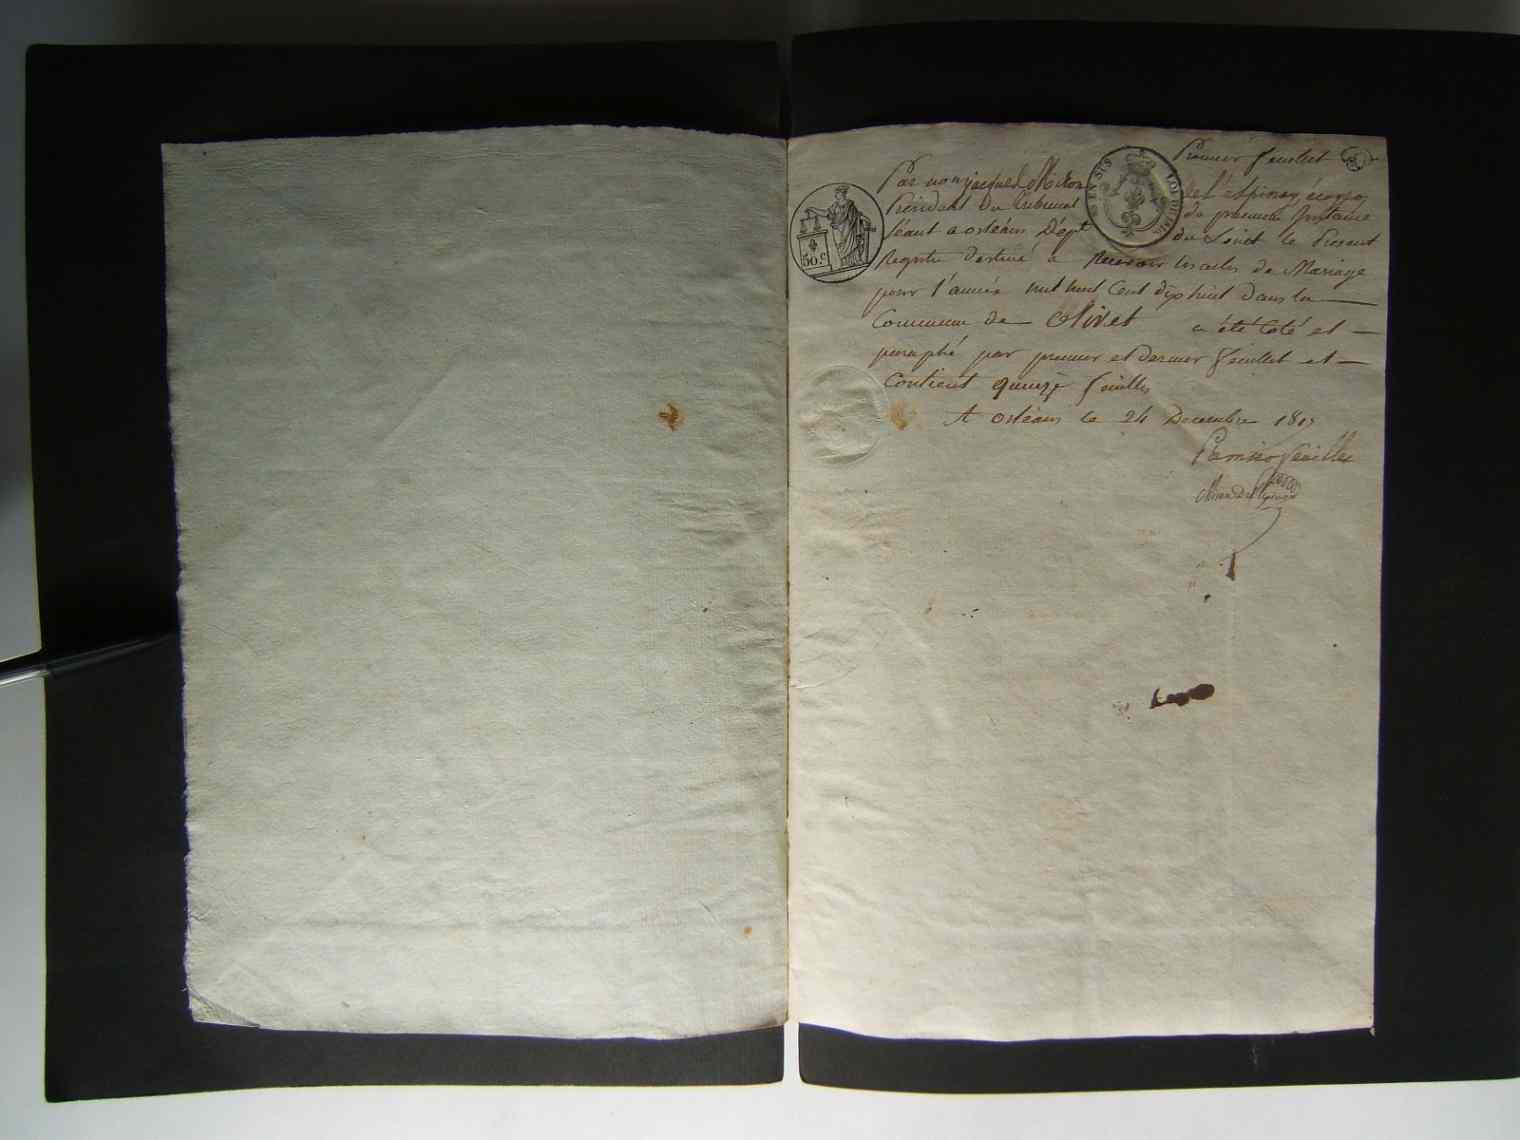 Premier feuillet
Par nous jacques Miron de l'Espinay écuyer
Président du tribunal de premiere Instance
séant a orléans Dépt du Loiret le Present
Registre destiné a Recevoir les actes de Mariage
pour l'année mil huit Cent dix huit dans la
Commune de Olivet a été Coté et
paraphé par premier et dernier feuillet et
Contient quinze feuilles
A orléans le 24 Decembre 1817
Premier feuillet
Miron de l'Espinay
50 C.